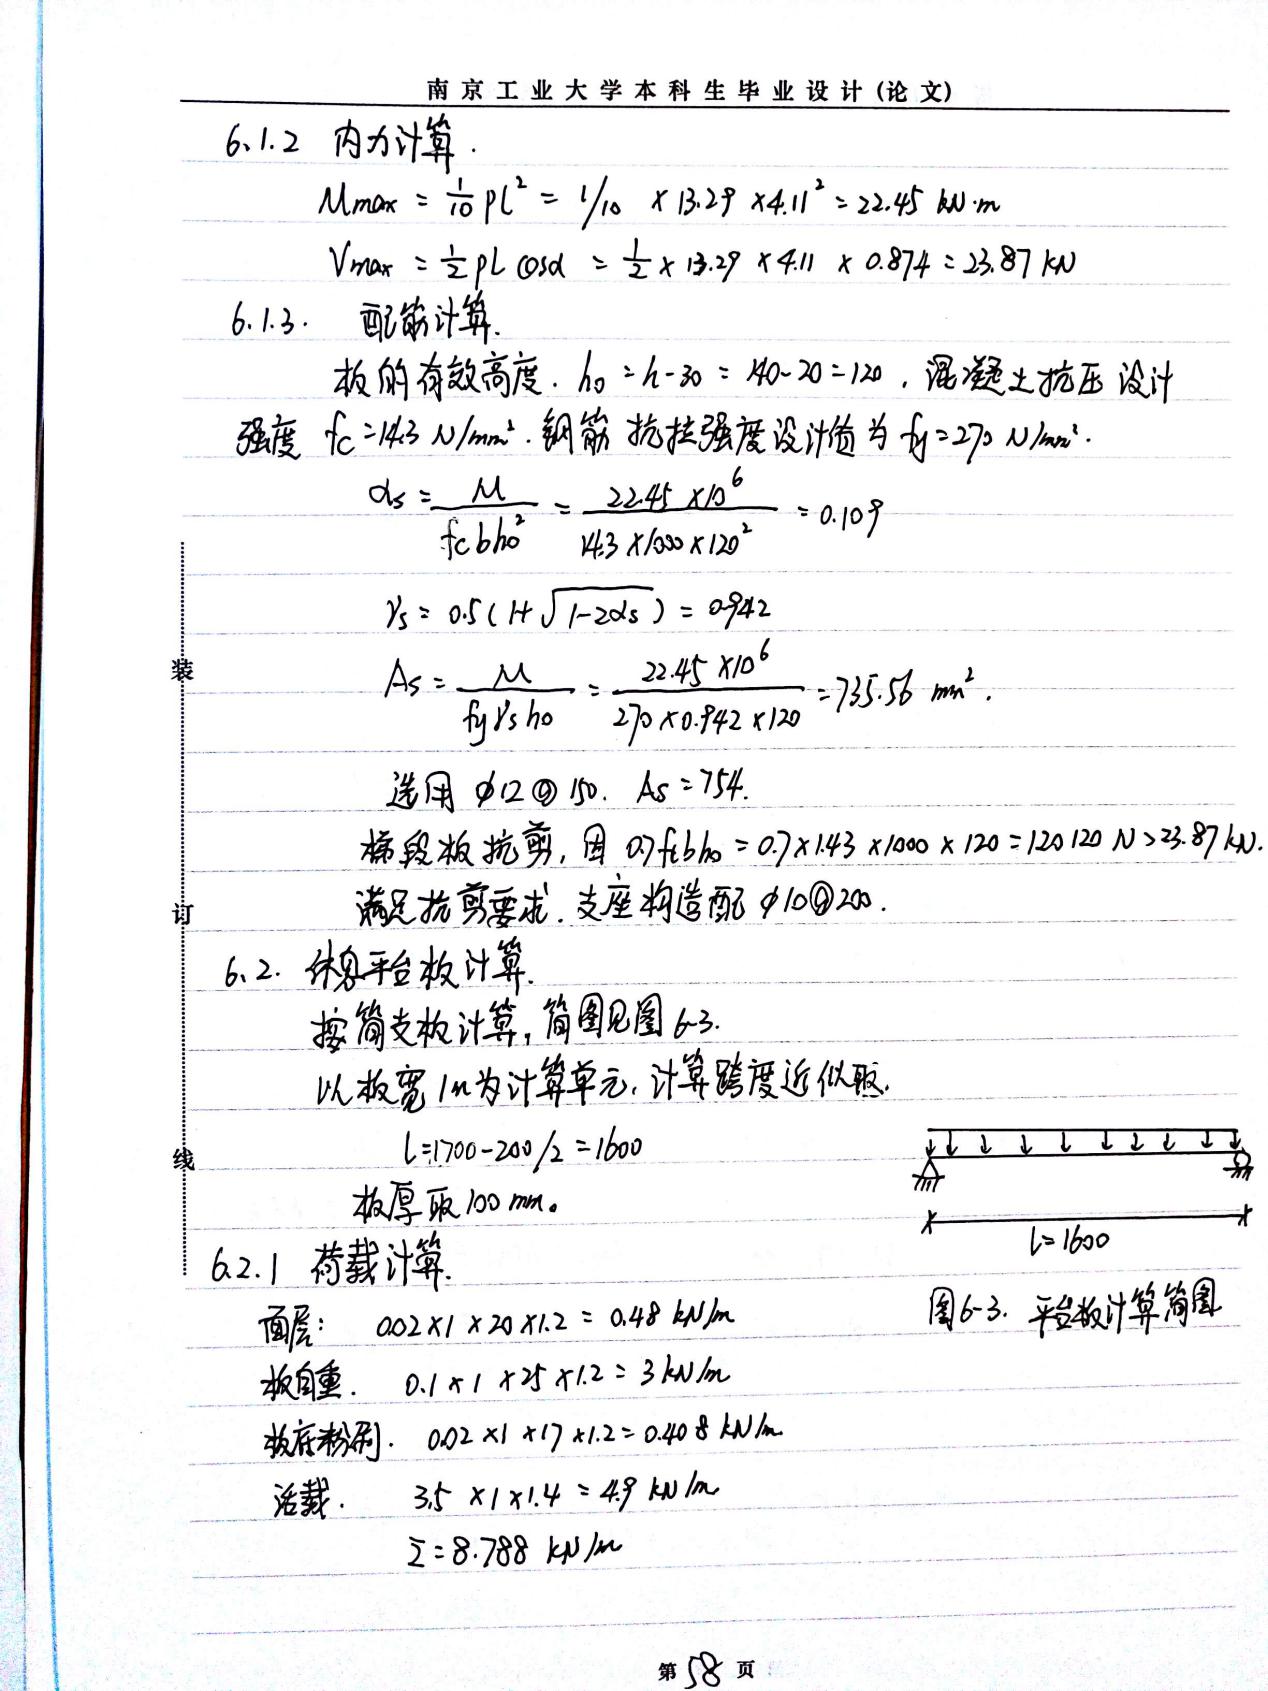 南京工业大学本科生毕业设计(论文)
6.1.2 内力计算.
Mmax = 1/10 pl² = 1/10 × 13.29 × 4.11² = 22.45 kN·m
Vmax = 1/2 pl cosα = 1/2 × 13.29 × 4.11 × 0.874 = 23.87 kN
6.1.3. 配筋计算.
板的有效高度. h₀ = h-30 = 140-20 = 120 , 混凝土抗压设计
强度 fc = 14.3 N/mm². 钢筋抗拉强度设计值为 fy = 270 N/mm².
αs = M / fcbh₀² = 22.45 ×10⁶ / 14.3 ×1000 ×120² = 0.109
γs = 0.5 ( 1+ √1-2αs ) = 0.942
As = M / fyγsh₀ = 22.45 ×10⁶ / 270 ×0.942 ×120 = 735.56 mm².
装
选用 φ12 @ 150. As = 754.
梯段板抗剪, 因 0.7ftbh₀ = 0.7×1.43 ×1000 × 120 = 120120 N > 23.87 kN.
满足抗剪要求. 支座构造配 φ10@200.
订
6.2. 休息平台板计算.
按简支板计算, 简图见图 6-3.
以板宽 1m为计算单元, 计算跨度近似取.
l=1700-200/2 = 1600
线
板厚取 100 mm。
l= 1600
6.2.1 荷载计算.
图6-3. 平台板计算简图
面层: 0.02×1 ×20 ×1.2 = 0.48 kN/m
板自重. 0.1 ×1 ×25 ×1.2 = 3 kN/m
板底粉刷. 0.02 ×1 ×17 ×1.2 = 0.408 kN/m
活载. 3.5 ×1 ×1.4 = 4.9 kN/m
Σ = 8.788 kN/m
第 58 页